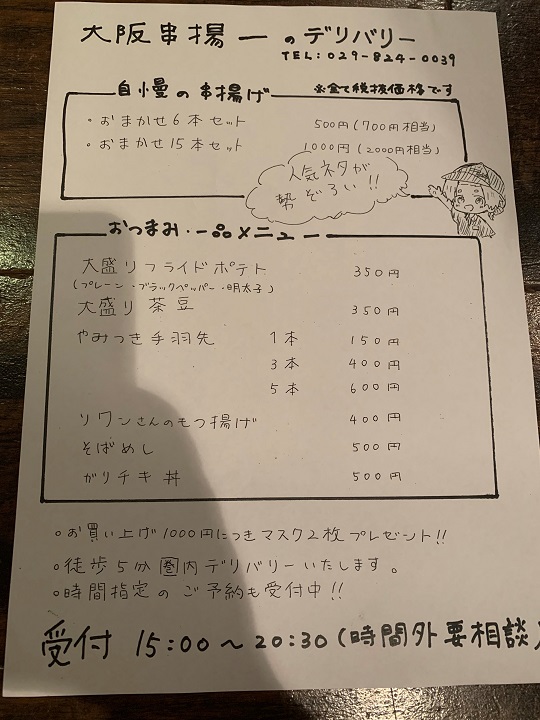 大阪串揚 一 のデリバリー
TEL:029-824-0039
自慢の串揚げ ※全て税抜価格です
・おまかせ6本セット 500円(700円相当)
・おまかせ15本セット 1000円(2000円相当)
人気ネタが
勢ぞろい!!
おつまみ・一品メニュー
大盛りフライドポテト 350円
(プレーン・ブラックペッパー・明太子)
大盛り茶豆 350円
やみつき手羽先 1本 150円
3本 400円
5本 600円
リワンさんのもつ揚げ 400円
そばめし 500円
ガリチキ丼 500円
○お買い上げ1000円につきマスク2枚プレゼント!!
○徒歩5分圏内デリバリーいたします。
○時間指定のご予約も受付中!!
受付 15:00~20:30(時間外要相談)